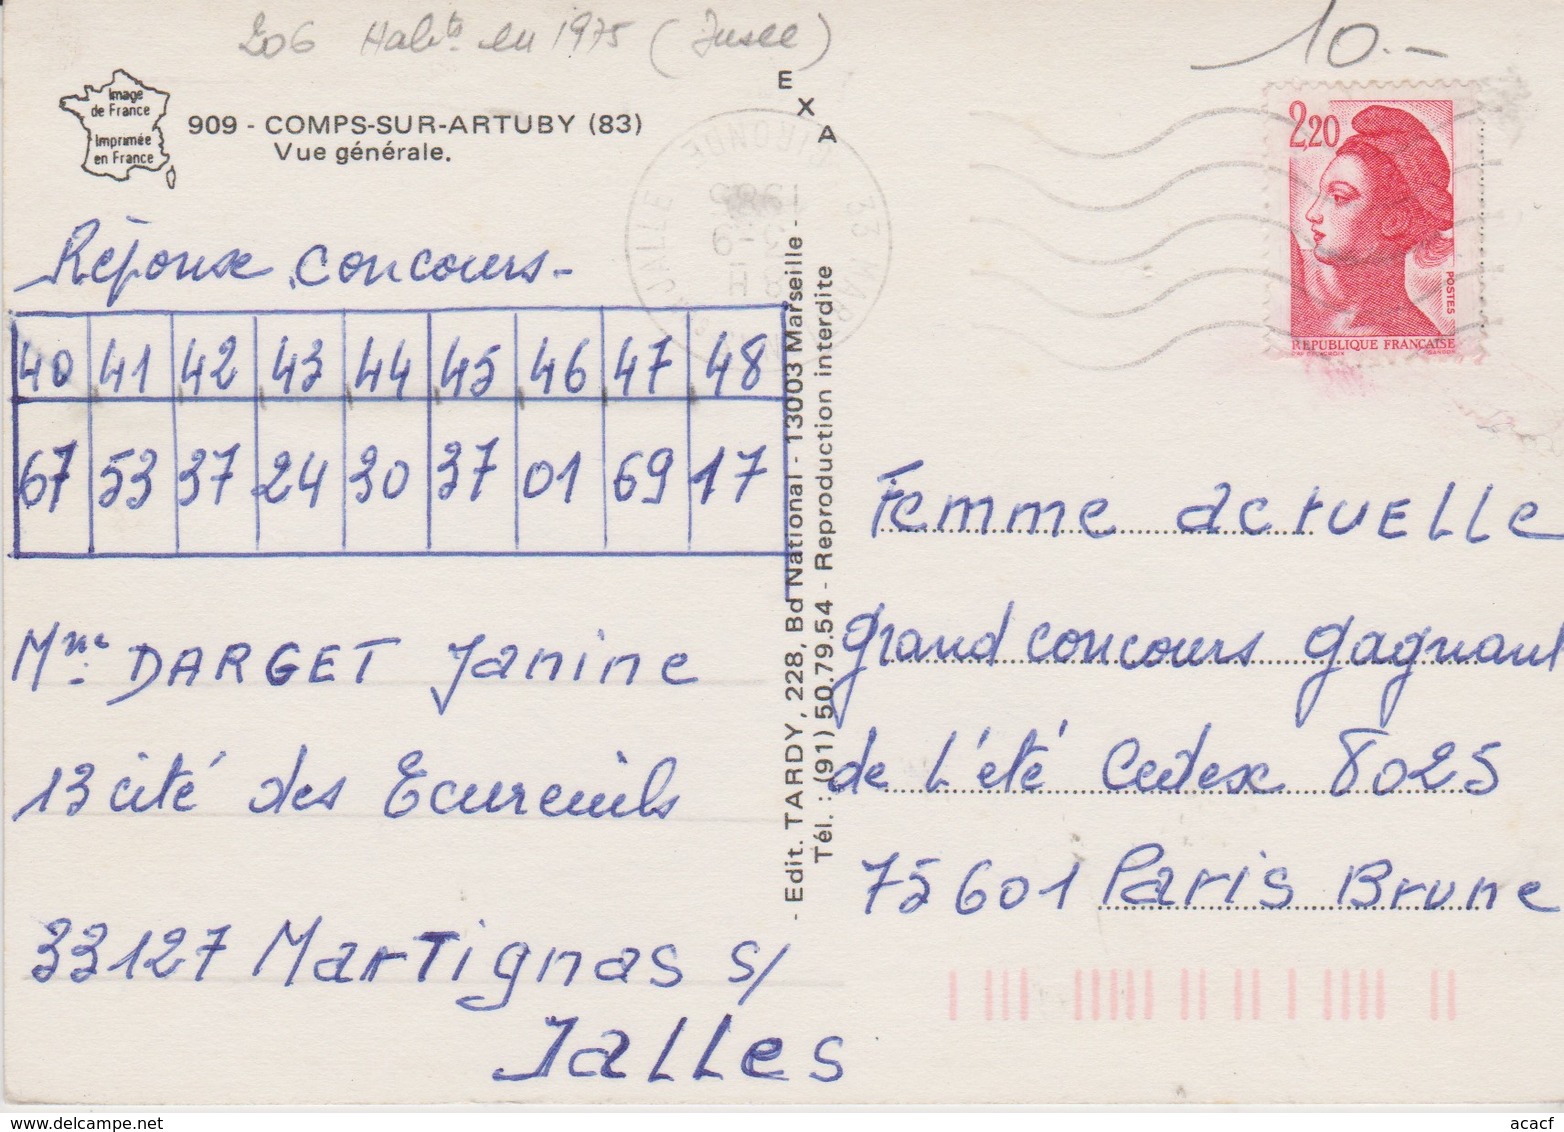 206 Habts en 1975 (Insee)
10.-
Image
de France
Imprimée
en France
909 - COMPS-SUR-ARTUBY (83)
Vue générale.
E
X
A
33 MAR JALLE GIRONDE
18 H
3-9
2,20
POSTES
REPUBLIQUE FRANCAISE
Réponse concours-
40 41 42 43 44 45 46 47 48
67 53 37 24 30 37 01 69 17
Mme DARGET Janine
13 cité des Ecureuils
33127 Martignas s/
Jalles
- Edit. TARDY, 228, Bd National - 13003 Marseille -
Tél. : (91) 50.79.54 - Reproduction interdite
Femme actuelle
grand concours gagnant
de l'été Cedex 8025
75601 Paris Brune
acacf